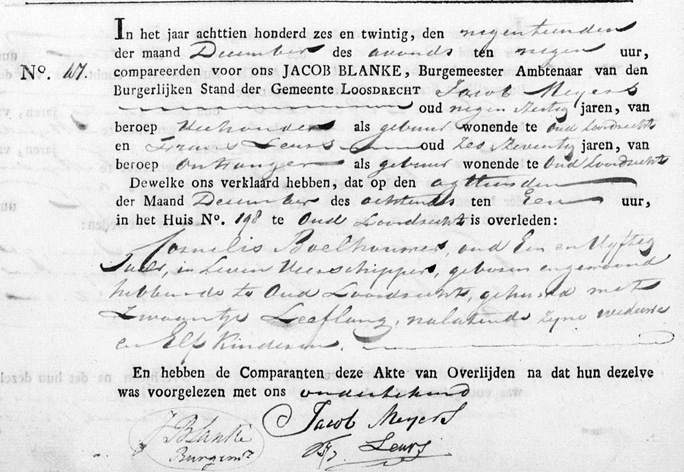 In het jaar achttien honderd zes en twintig, den negentienden
der maand December des avonds ten negen uur,
No. 47. compareerden voor ons JACOB BLANKE, Burgemeester Ambtenaar van den
Burgerlijken Stand der Gemeente LOOSDRECHT Jacob Meyers
oud negen dertig jaren, van
beroep Veehouder als gebuur wonende te Oud Loosdrecht
en Frans Leurs oud zes zeventig jaren, van
beroep Ontvanger als gebuur wonende te Oud Loosdrecht
Dewelke ons verklaard hebben, dat op den agttienden
der Maand December des ten Een uur,
in het Huis No. 198 te Oud Loosdrecht is overleden:
Cornelis oud Een en Vyftig
Jaar, in Leven Veerschipper, geboren en gewoond
hebbende te Oud Loosdrecht, gehuwd met
Zwaantje Leeflang, nalatende zyne weduwe
en Elf Kinderen.
En hebben de Comparanten deze Akte van Overlijden na dat hun dezelve
was voorgelezen met ons onderteekend
J Blanke Jacob Meyers
Burgemr Leurs